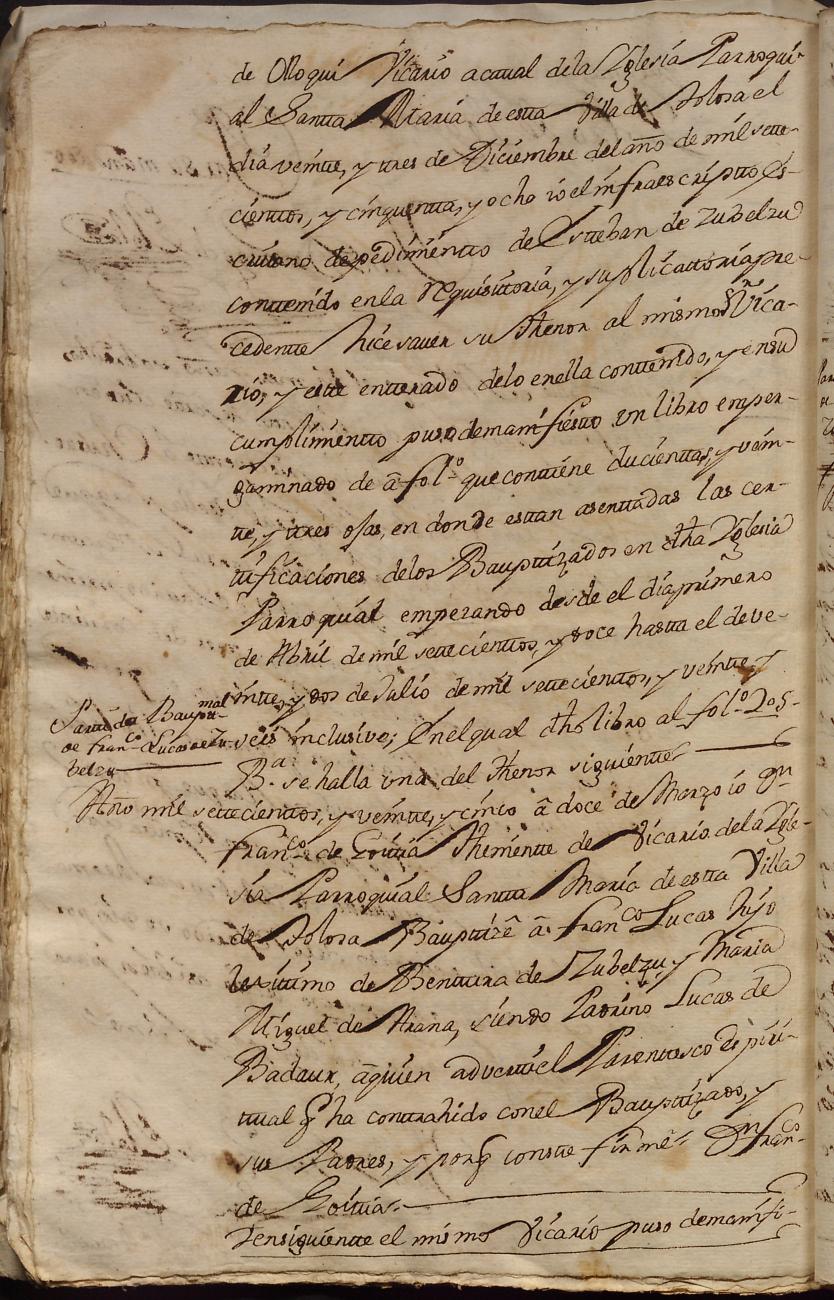 de Olloqui Vicario actual dela Yglesia Parroqui-
al Santta Maria de estta Villa de Tolosa el
dia veintte, y ttres de Diciembre del año de mil sette-
cienttos, y cinquentta, y ocho io el infraescriptto Es-
crivano de pedimentto de Estteban de Zubelzu
conttenido en la requisittoria, y suplicattoria pre-
cedentte hice saver su thenor al mismo Vica-
rio, y estte entterado delo en ella conttenido, y en su
cumplimientto puso demanifiestto un libro enper-
gaminado de â folº que conttiene ducienttas, y vein-
tte, y ttres ojas, en donde esttan asenttadas las cer-
ttificaciones delos Bapttizados en dha Yglesia
Parroquial empezando desde el dia primero
de Abril de mil settecienttos, y doce hastta el de ve-
intte, y dos de Julio de mil settecienttos, y veintte, y
seis inclusive; Enel qual dho libro al folº 205.
Bª. se halla una del thenor siguientte
Parttida Bauptt-mal
de Franco Lucas de Zu-
belzu
Año mil settecienttos, y veintte, y cinco â doce de Marzo io Dn
Franco de Goittia Thenientte de Vicario dela Ygle-
sia Parroquial Santta Maria de estta Villa
de Tolosa Baupttizê â Franco Lucas hijo
lexittimo de Benttura de Zubelzu, y Maria
Miguel de Arana, siendo Padrino Lucas de
Badaur, âquien adverttí el Parenttesco Espiri-
ttual q̃ ha conttrahido conel Baupttizado, y
sus Padres, y porq̃ constte firmê: Dn Franco
de Goittia.
Yensiguientte el mismo Vicario puso demanifi-